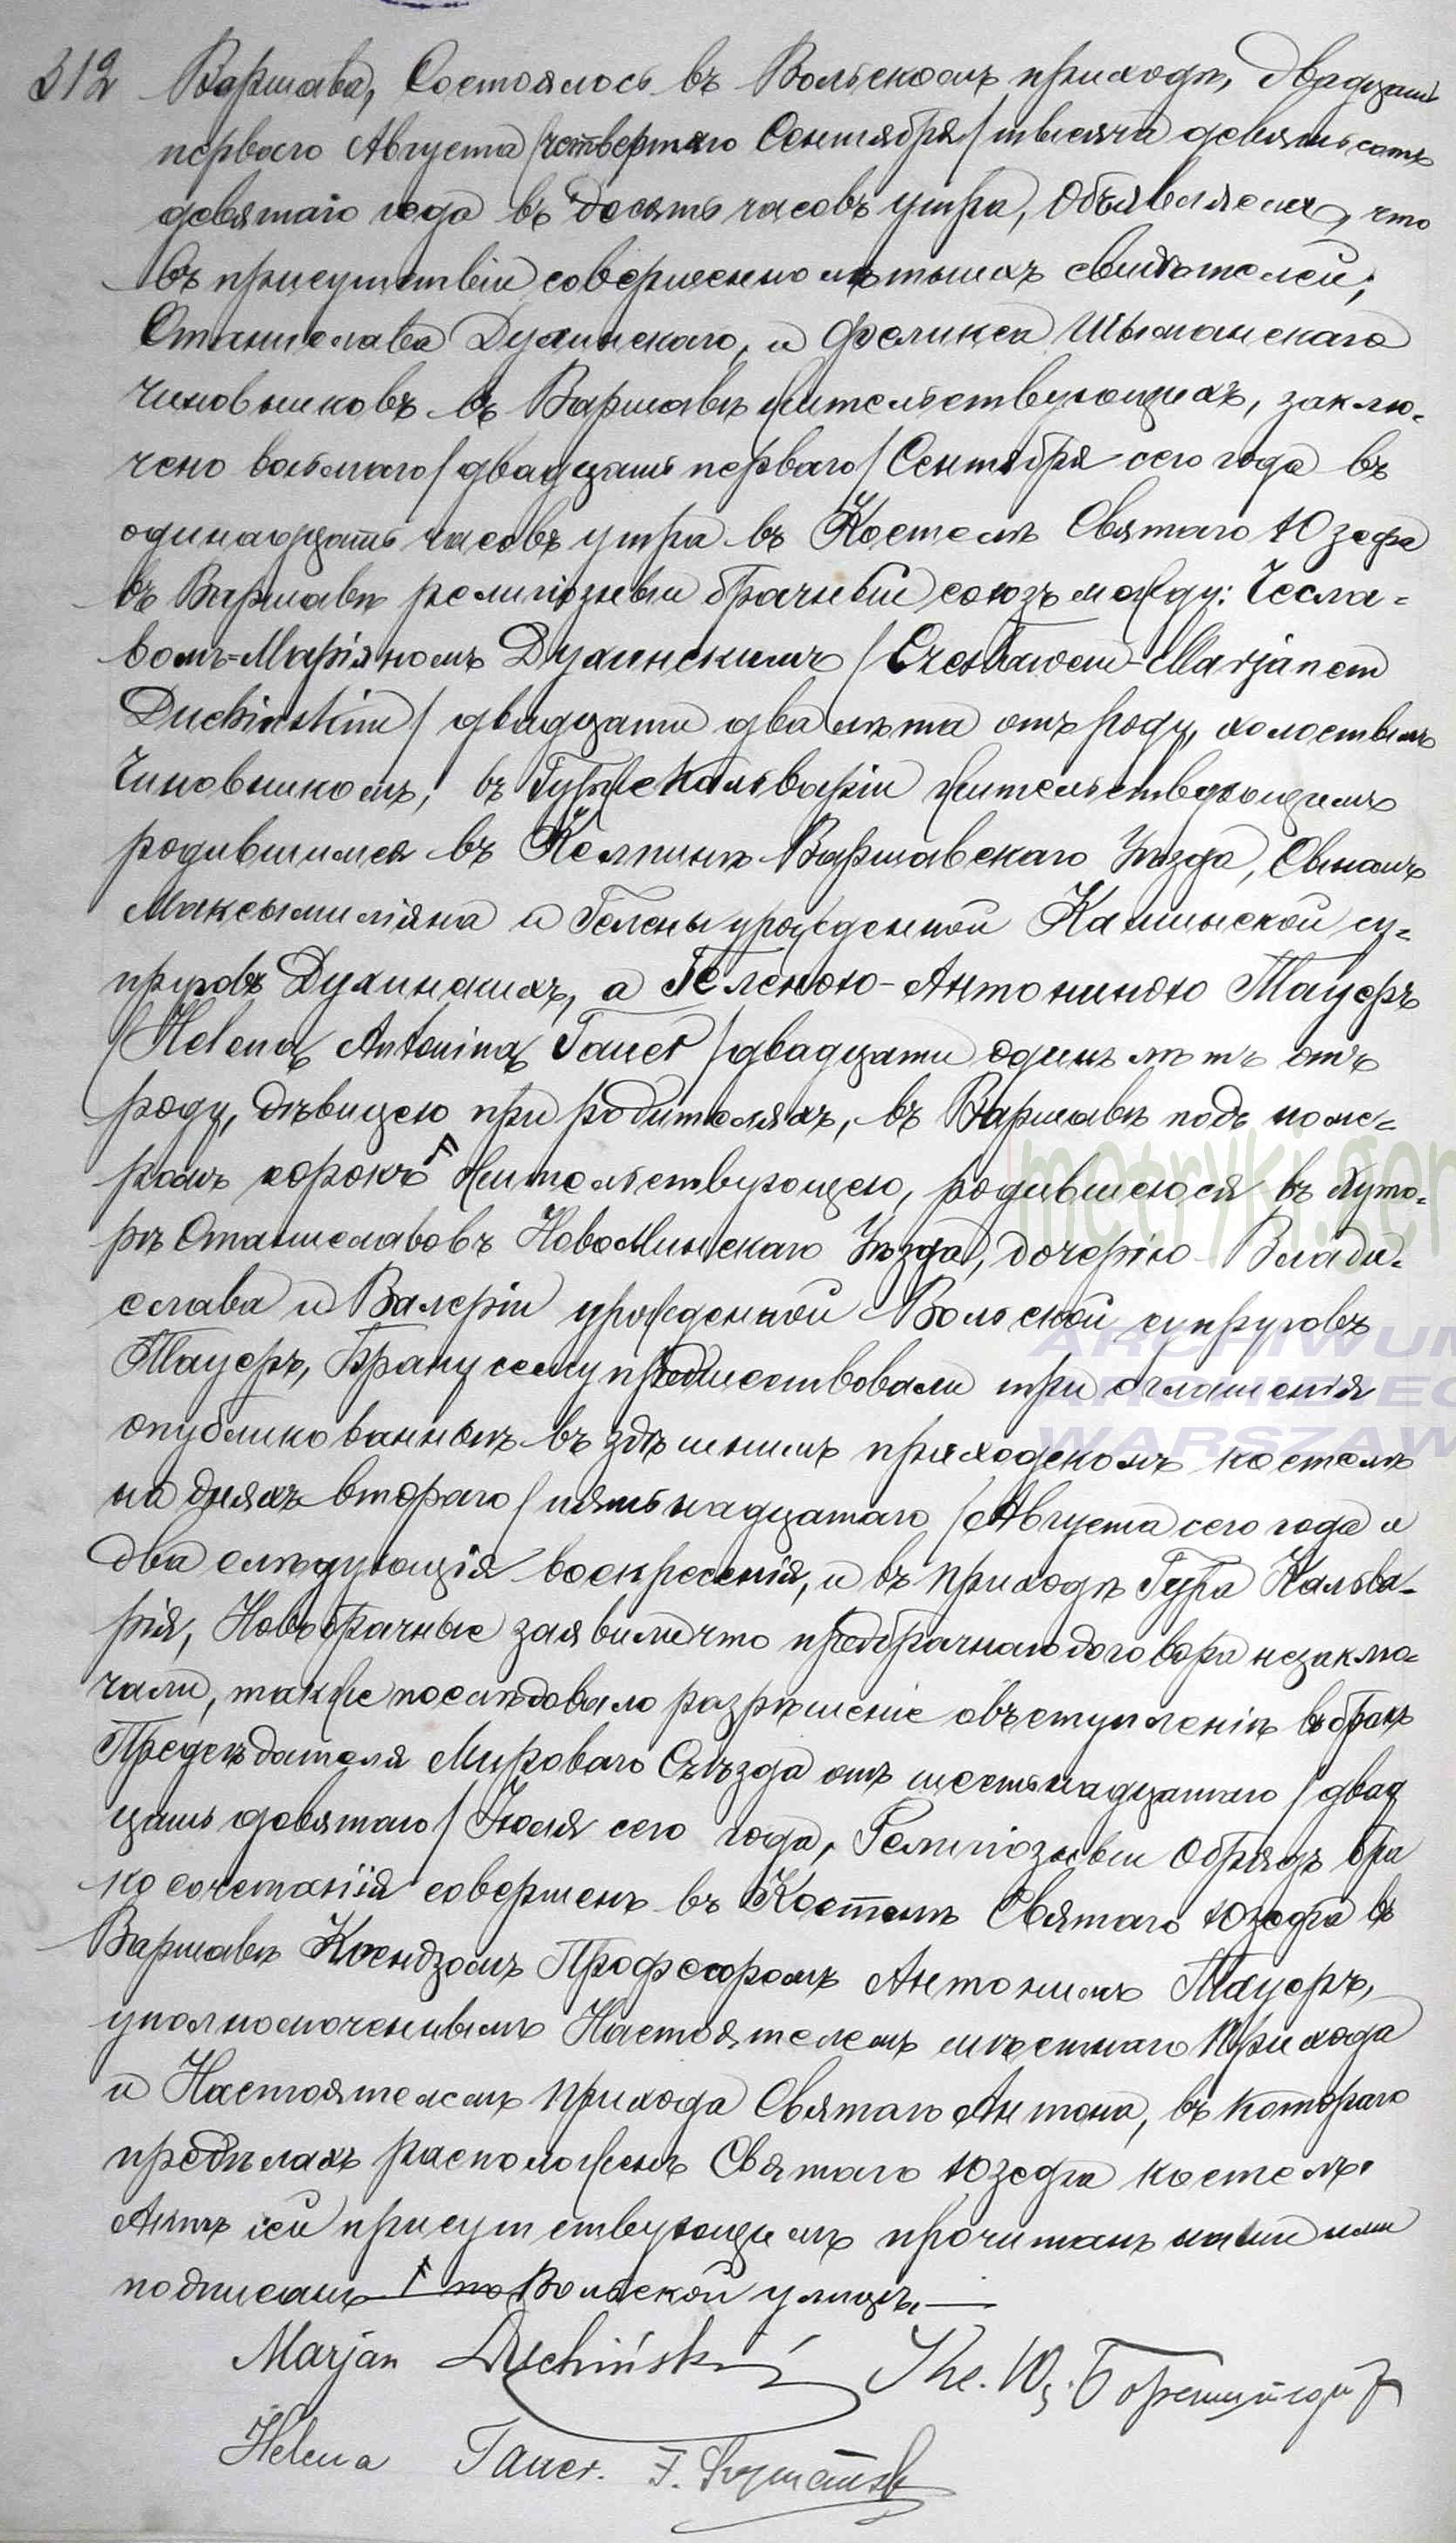 312 Варшава, Состоялось въ Вольскомъ приходѣ, двадцать
перваго Августа /четвертаго Сентября/ тысяча девятьсотъ
девятаго года въ десять часовъ утра, Объявляемъ, что
въ присутствіи совершеннолѣтныхъ свидѣтелей;
Станислава Духинскаго, и Феликса Шыманскаго
чиновниковъ въ Варшавѣ жительствующихъ, заклю-
чено восьмаго /двадцать перваго/ Сентября сего года въ
одинадцать часовъ утра въ Костелѣ Святаго Юзефа
въ Варшавѣ религіозный брачный союзъ между: Чесла-
вомъ-Маріяномъ Духинскимъ /Czesławem-Marjanem
Duchińskim/ двадцати два лѣта отъ роду, холостымъ
Чиновникомъ, въ Гурѣ Кальваріи жительствующимъ
родившимся въ Варшавскаго Уѣзда, Сыномъ
Максымиліяна и Гелены урожденной Каминской су-
пруговъ Духинскихъ, а Геленою-Антониною Тауеръ
/Helena Antonina Tauer/ двадцати одинъ лѣтъ отъ
роду, дѣвицею при родителяхъ, въ Варшавѣ подъ номе-
ромъ сорокъ жительствующею, родившеюся въ Хуто-
рѣ Станиславовъ НовоМинскаго Уѣзда, дочерію Влади-
слава и Валеріи урожденной Вольской супруговъ
Тауеръ, Браку сему предшествовали три оглашенія
опубликованныхъ въ здѣшнимъ приходскомъ костелѣ
на дняхъ втораго /пятьнадцатаго/ Августа сего года и
два слѣдующія воскресенія, и въ приходѣ Гура Кальва-
рія, Новобрачные заявили что предбрачнаго договора незаклю-
чали, также послѣдовало разрѣшеніе объ вступленіѣ въ бракъ
Предсѣдателя Мироваго Съѣзда отъ шестьнадцатаго /двад
цать девятаго/ Іюля сего года, Религіозный Обрядъ бра
косочетанія совершенъ въ Костелѣ Святаго Юзефа въ
Варшавѣ Ксендзомъ Профессоромъ Антонимъ Тауеръ,
уполномоченнымъ Настоятелемъ мѣстнаго Прихода
и Настоятелемъ прихода Святаго Антона, въ котораго
предѣлахъ расположенъ Святаго Юзефа костелъ.
Актъ сей присутствующимъ прочитанъ нами ими
подписанъ по Вольской улицѣ,
Marjan Duchiński
Helena Tauer. F. Szymański
metryki.gen
ARCHIWUM
ARCHIDIEC
WARSZAW